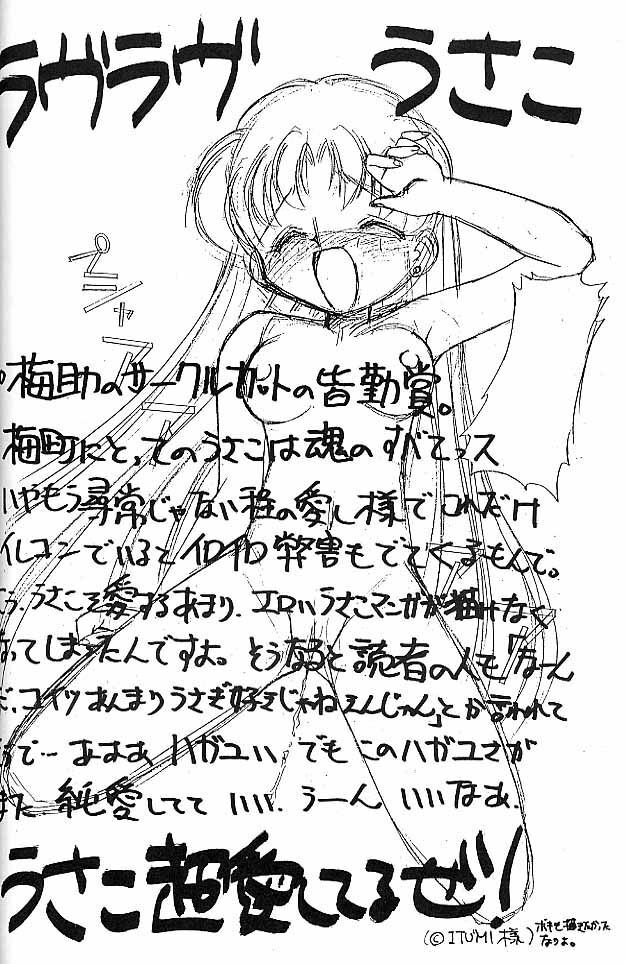 ラヴラヴ うさこ
ピシャアーン
梅助のサークルカットの皆勤賞。
梅町にとってのうさこは魂のすべてっス
いやもう尋常じゃない程の愛し様でこれだけ
イレコンでいるとイロイロ弊害もでてくるもんで。
うさこを愛するあまり、エロいうさこマンガが描けなく
なってしまったんですよ。そうなると読者の人も「なーん
だ、コイツあんまりうさぎ好きじゃねえんじゃん」とか言われて
で…あああ ハガユい でもこのハガユさが
また 純愛してて いい。うーん いいなあ。
うさこ超愛してるぜ!
(©ITUMI様)